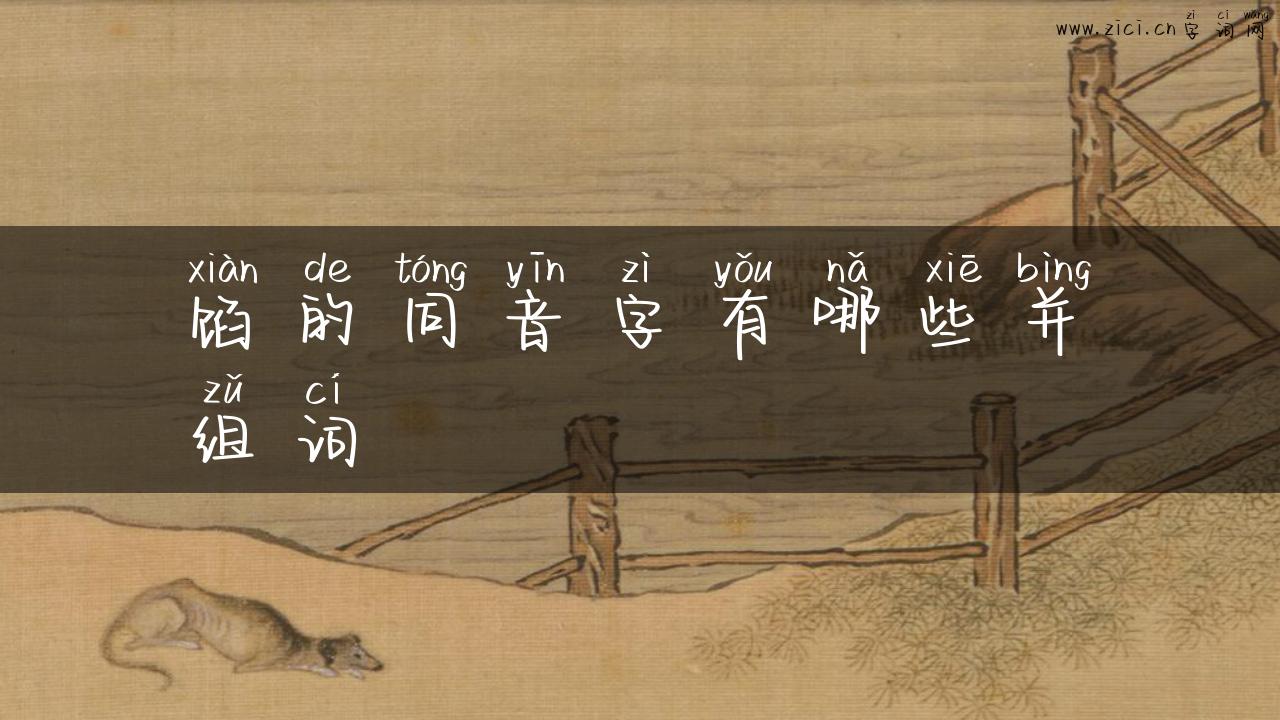 zi ci wang
www.zici.cn 字词网
xiàn de tóng yīn zì yǒu nǎ xiē bìng
馅的同音字有哪些并
zǔ cí
组词